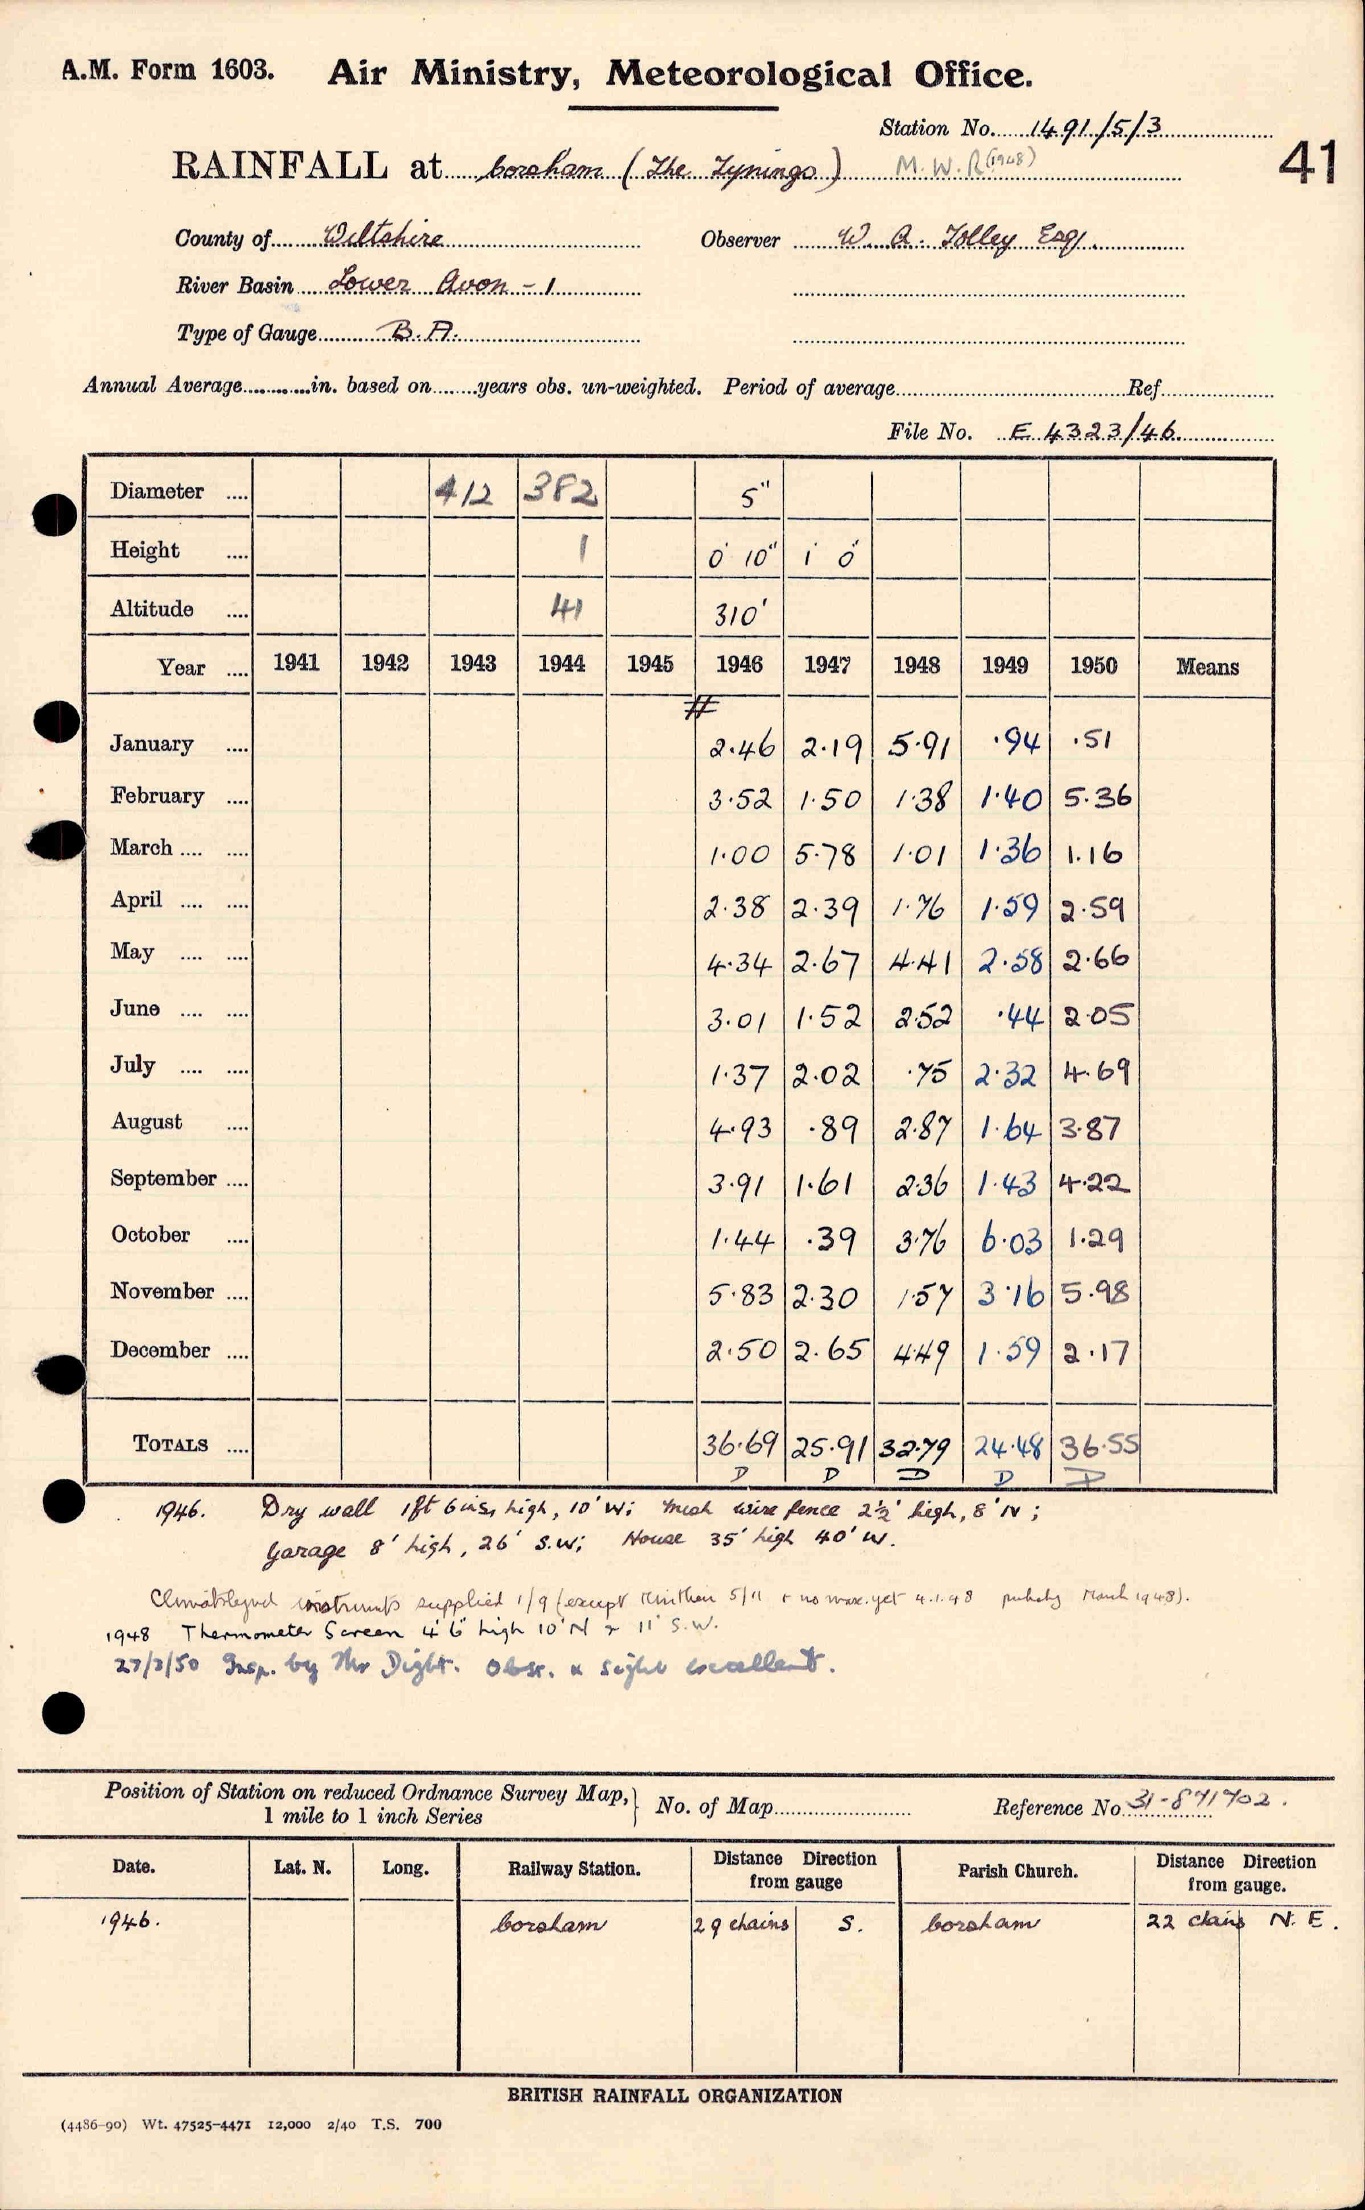 A.M. Form 1603. Air Ministry, Meteorological Office.
Station No. 1491/5/3
RAINFALL at Corsham (The Tynings) M.W.R (1948)
41
County of Wiltshire Observer W. A. Tolley Esq.
River Basin Lower Avon - 1
Type of Gauge B.A.
Annual Average in. based on years obs. un-weighted. Period of average Ref
File No. E 4323/46
Diameter 412 382 5"
Height 1 0' 10" 1' 0"
Altitude 41 310'
Year 1941 1942 1943 1944 1945 1946 1947 1948 1949 1950 Means
#
January 2.46 2.19 5.91 .94 .51
February 3.52 1.50 1.38 1.40 5.36
March 1.00 5.78 1.01 1.36 1.16
April 2.38 2.39 1.76 1.59 2.59
May 4.34 2.67 4.41 2.58 2.66
June 3.01 1.52 2.52 .44 2.05
July 1.37 2.02 .75 2.32 4.69
August 4.93 .89 2.87 1.64 3.87
September 3.91 1.61 2.36 1.43 4.22
October 1.44 .39 3.76 6.03 1.29
November 5.83 2.30 1.57 3.16 5.98
December 2.50 2.65 4.49 1.59 2.17
TOTALS 36.69 25.91 32.79 24.48 36.55
D D D D D
1946. Dry wall 1ft 6ins high, 10' W; mesh wire fence 2½' high, 8' N;
Garage 8' high, 26' S.W; House 35' high 40' W.
supplied 1/9 (except 5/11 + no max. yet 4.1.48 probably March 1948).
1948 Thermometer Screen 4' 6" high 10' N & 11' S.W.
Insp. by Mr Dight. Obsr. & excellent.
Position of Station on reduced Ordnance Survey Map,
1 mile to 1 inch Series No. of Map Reference No 31-871702.
Date. Lat. N. Long. Railway Station. Distance Direction from gauge Parish Church. Distance Direction from gauge.
1946. Corsham 29 chains S. Corsham 22 chains N.E.
BRITISH RAINFALL ORGANIZATION
(4486-90) Wt. 47525-4471 12,000 2/40 T.S. 700